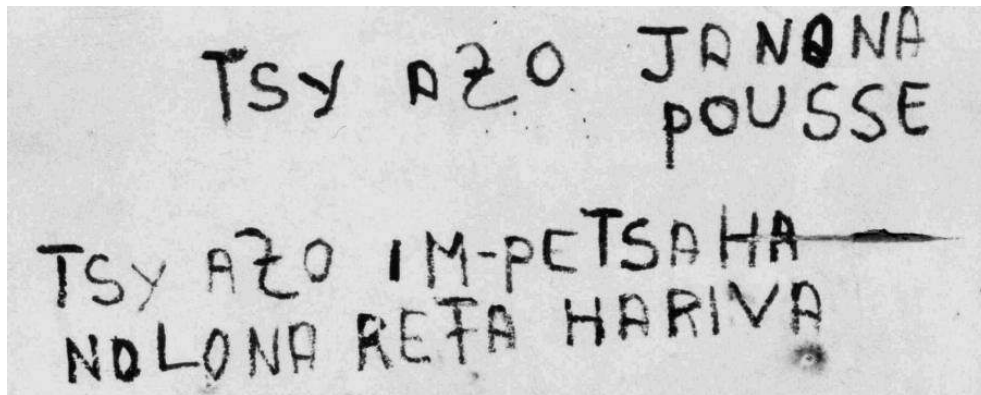 TSY AZO JANONA
POUSSE
TSY AZO IM-PETSAHA
NOLONA REFA HARIVA